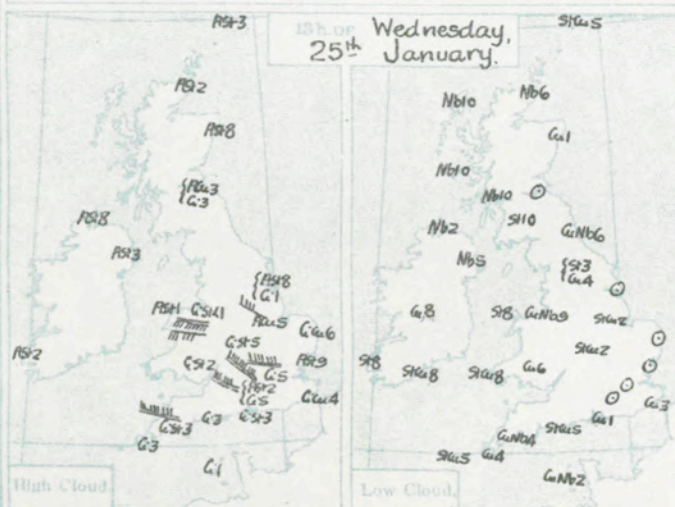 13h OF Wednesday,
25th January.
ASt3
ASt2
ASt8
ACu3
Ci3
ASt8
ASt3
ASt8
Ci1
ASt1 CiSt1
ACu5
CiCu6
ASt2
CiSt5
CiSt2
Ci5
ASt9
ASt2
Ci5
CiCu4
CiSt3
Ci3
CiSt3
Ci3
Ci1
High Cloud.
StCu5
Nb10
Nb6
Cu1
Nb10
Nb10
St10
Nb2
CuNb6
Nb5
St3
Cu4
Cu8
St8
CuNb9
StCu2
StCu2
St8
StCu8
StCu8
Cu6
Cu3
Cu1
CuNb4
StCu5
StCu5
Cu4
CuNb2
Low Cloud.